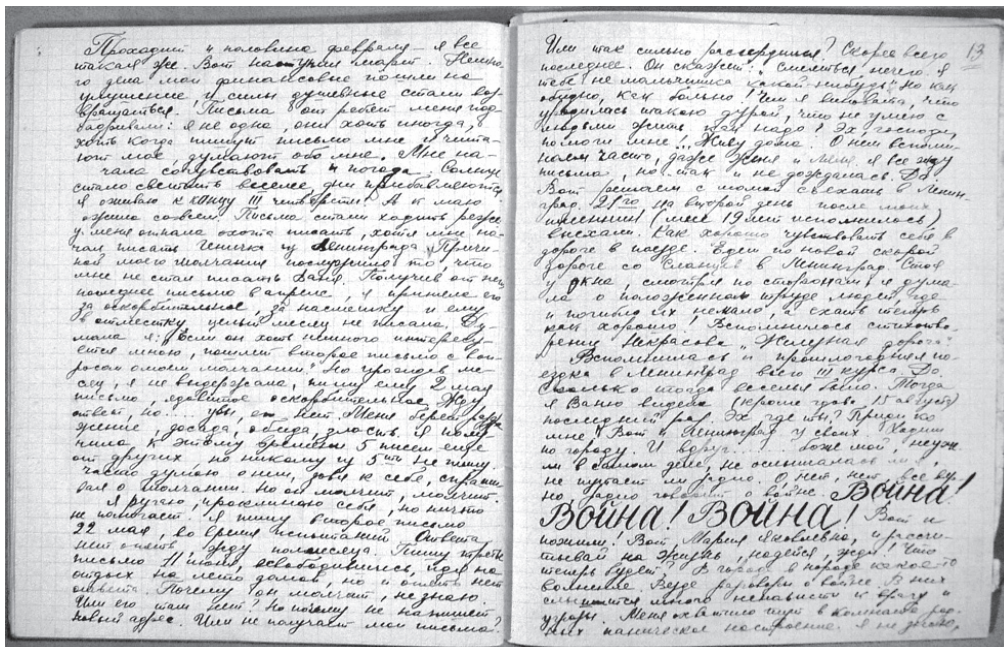 Проходит и половина февраля – я все
такая же. Вот наступил март. Немно-
го дела мои финансовые пошли на
улучшение и силы душевные стали воз-
вращаться. Письма от ребят меня под-
бадривали: я не одна, они хоть иногда,
хоть когда пишут письмо мне и чита-
ют мое, думают обо мне. Мне на-
чала сопутствовать и погода. Солнце
стало светить веселее, дни прибавляются,
я оживаю к концу III четверти. А к маю
ожила совсем. Письма стали ходить реже,
у меня отпала охота писать, хотя мне на-
чал писать Геничка из Ленинграда. Причи-
ной моего молчания послужило то, что
мне не стал писать Ваня. Получив от него
последнее письмо в апреле, я приняла его
за оскорбительное, за насмешку и ему
в отместку целый месяц не писала. Ду-
мала я: "Если он хоть немного интересу-
ется мною, пошлет второе письмо с воп-
росом о моем молчании." Но проходит ме-
сяц, я не выдержала, пишу ему 2 мая
письмо, ядовитое оскорбительное. Жду
ответ, но.... увы, его нет. Меня берет раздра
жение, досада, обида, злость. Я полу-
чила к этому времени 5 писем еще
от других но никому из 5ти не пишу.
Часто думаю о нем, зовя к себе, спраши
вая о молчании. Но он молчит, молчит.
Я ругаю, проклинаю себя, но ничто
не помогает. Я пишу второе письмо
22 мая, во время испытаний. Ответа
нет опять, жду полмесяца. Пишу третье
письмо 11 июня, освободившись, идя на
отдых на лето домой, но и опять нет
ответа. Почему он молчит, не знаю.
Или его там нет? Но почему не напишет
новый адрес. Или не получает мои письма?
13
Или так сильно рассердился? Скорее всего
последнее. Он скажет: "Смеяться нечего. я
тебе не мальчишка какой-нибудь." Но как
обидно, как больно! Чем я виновата, что
уродилась такою дурой, что не умею с
людьми жить как надо? Эх господи,
помоги мне... Живу дома. О нем вспоми-
наем часто, даже Женя и Леня. Я все жду
письма, но так и не дождалась. Да
Вот решаем с мамой съехать в Ленин-
град. 21го на второй день после моих
именин (мне 19 лет исполнилось)
выехали. Как хорошо чувствовать себя в
дороге в поезде. Едем по новой скорой
дороге со Сланцев в Ленинград. Стоя
у окна, смотря по сторонам, я дума-
ла о положенном труде людей, где
и погибло их немало, а ехать теперь
как хорошо! Вспомнилось стихотво-
рение Некрасова "Железная дорога."
Вспомнилась и прошлогодняя по-
ездка в Ленинград всего III курса. Да.
Сколько тогда веселья было. Тогда
я Ваню видела (кроме того, 15 августа)
последний раз. Эх, где ты? Приди ко
мне! Вот и Ленинград. У своих. Ходим
по городу. И вдруг...! Боже мой, неуже
ли в самом деле, не ослышалась ли я,
не путает ли радио. О нет, нет, все вер
но радио говорит о войне. Война!
Война! Война! Вот и
пожили! Вот Мария Яковлевна, и рассчи-
тывай на жизнь, надейся, жди! Что
теперь будет? В городе в народе какое-то
волнение. Везде разговоры о войне. В них
слышится много ненависти к врагу и
угрозы. Меня охватило тут в компании род-
ных паническое настроение. Я не думаю,